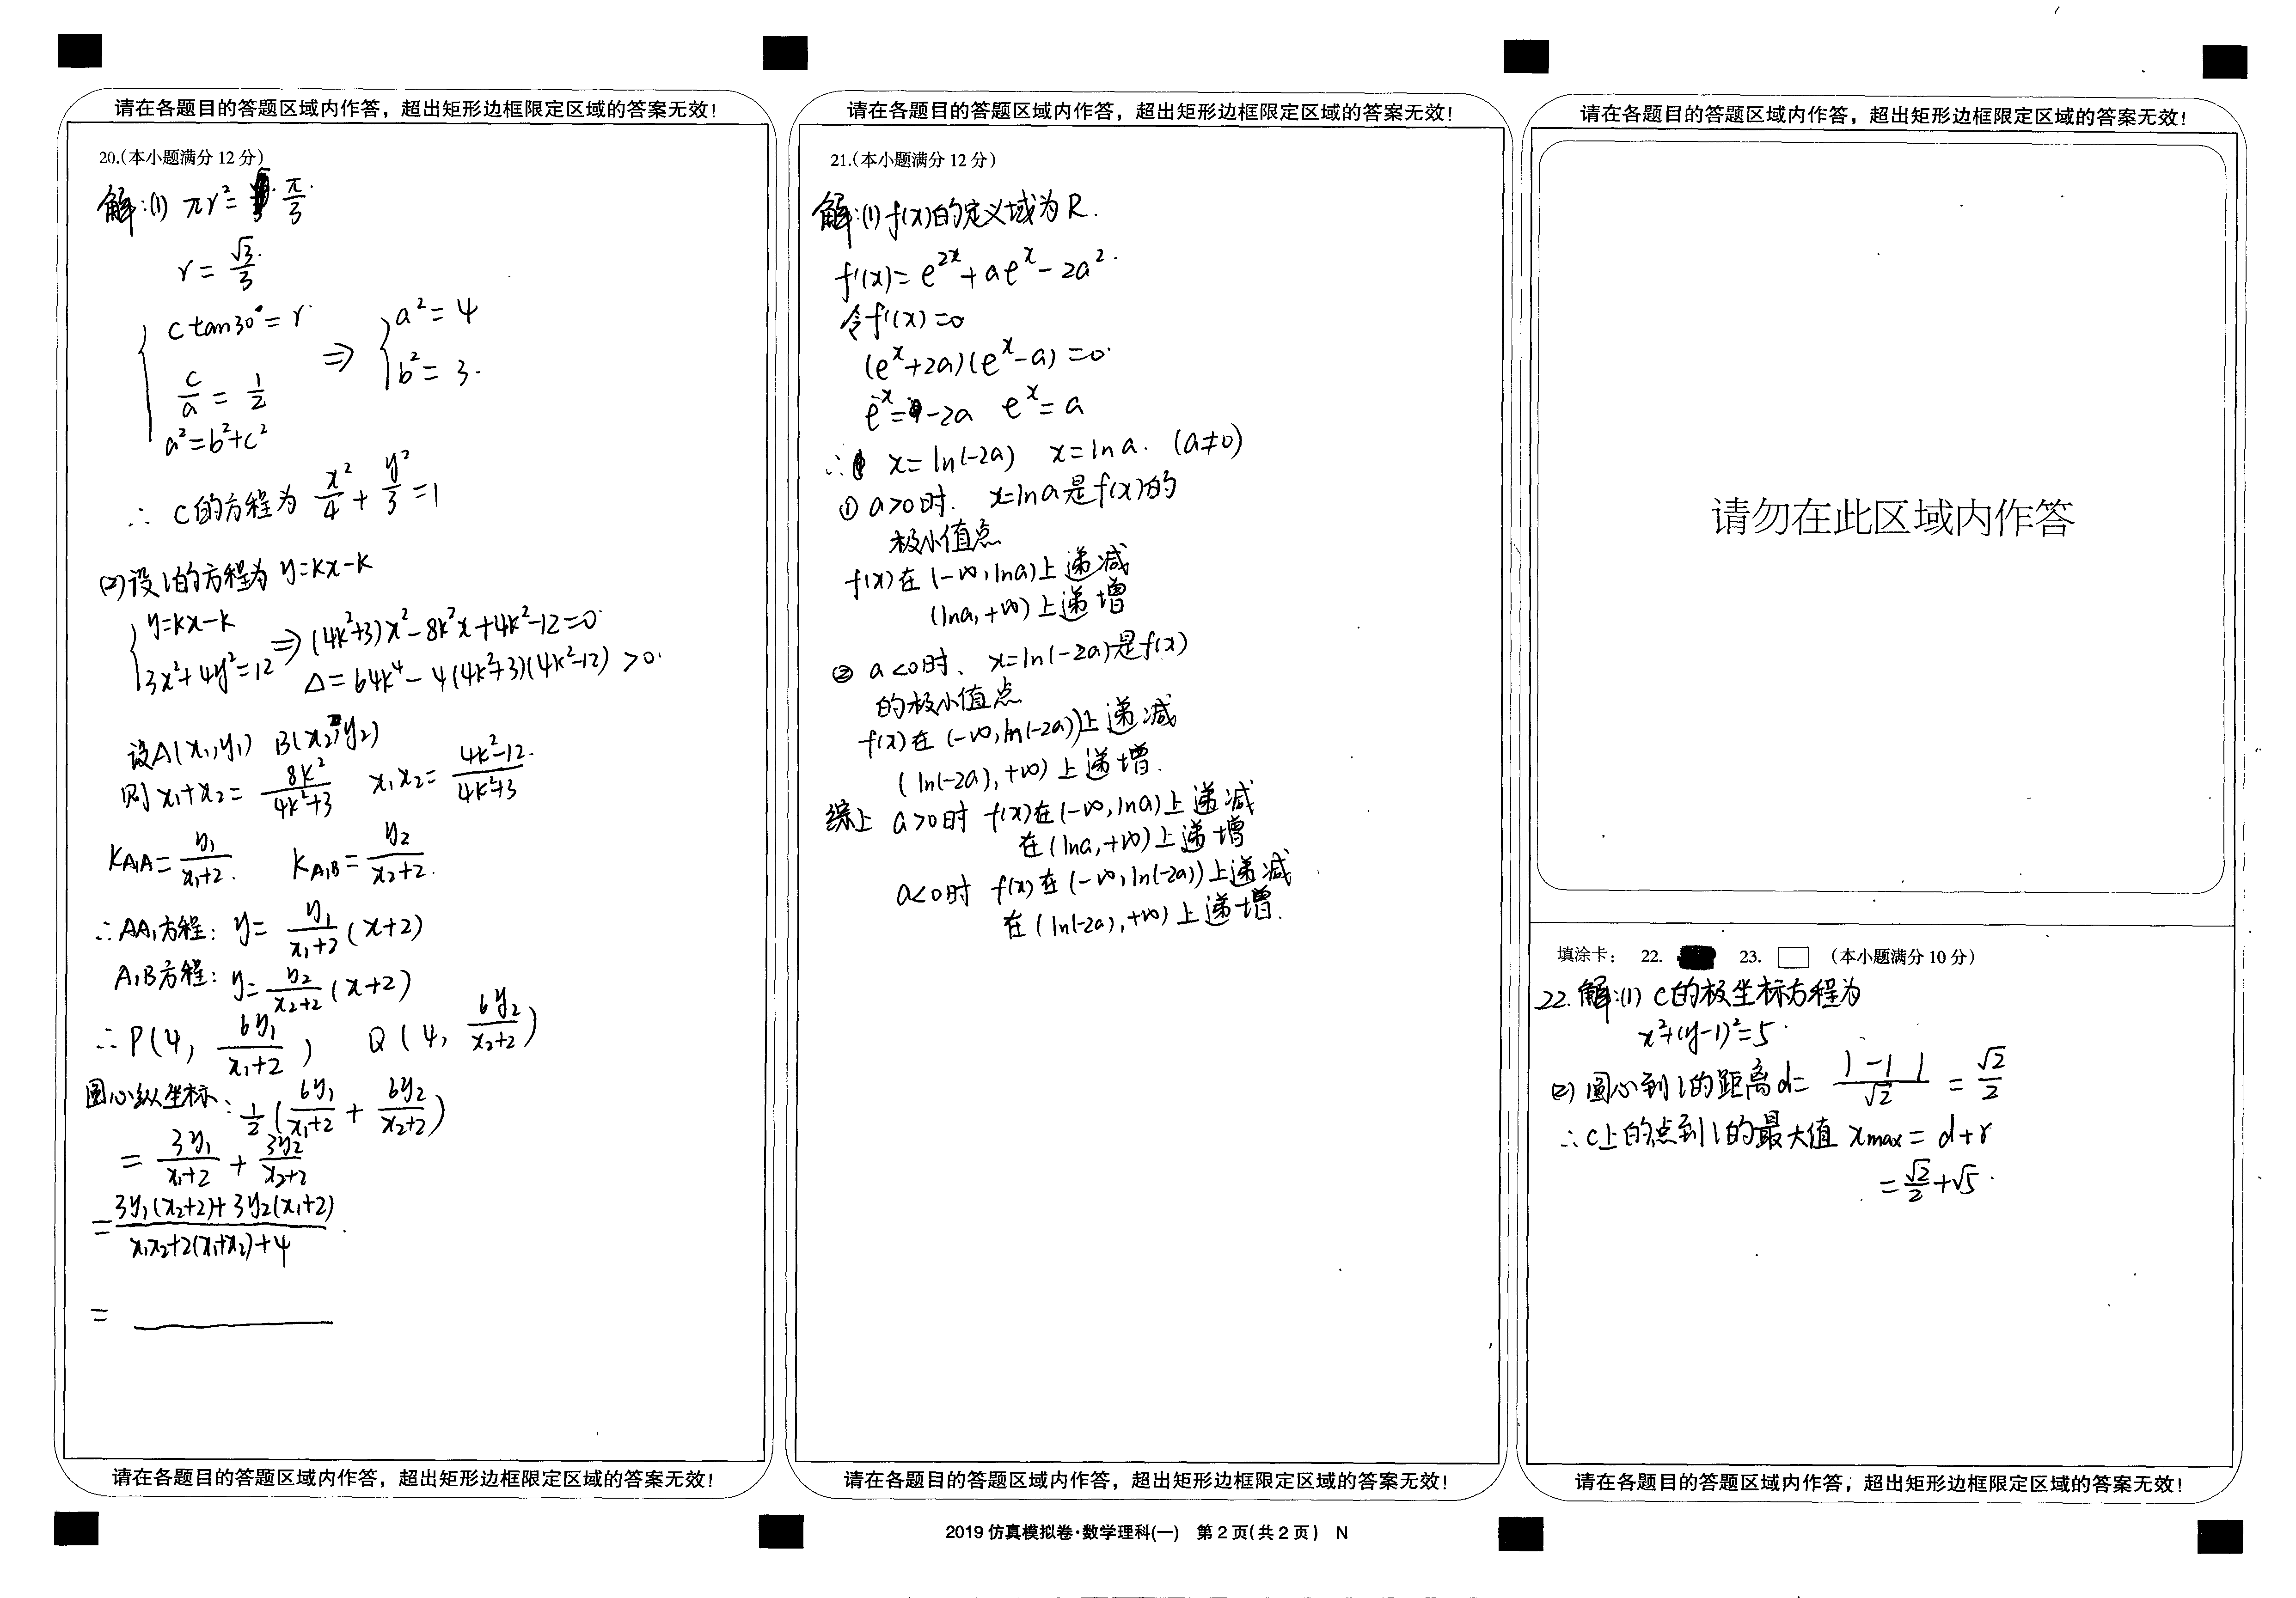 请在各题目的答题区域内作答，超出矩形边框限定区域的答案无效！
20.(本小题满分 12 分)
解:(1) πr²= π/3
r= √3/3
{ c tan30°= r
c/a = 1/2
a²=b²+c²
⇒ { a²=4
b²=3.
∴ C的方程为 x²/4 + y²/3 =1
(2)设l的方程为 y=kx-k
{ y=kx-k
3x²+4y²=12
⇒ (4k²+3)x²-8k²x+4k²-12=0
Δ=64k⁴-4(4k²+3)(4k²-12)>0.
设A(x₁,y₁) B(x₂,y₂)
则 x₁+x₂= 8k²/(4k²+3) x₁x₂= (4k²-12)/(4k²+3)
K_A₁A= y₁/(x₁+2). K_A₁B= y₂/(x₂+2).
∴AA₁方程: y= y₁/(x₁+2) (x+2)
A₁B方程: y= y₂/(x₂+2) (x+2)
∴ P(4, 6y₁/(x₁+2)) Q(4, 6y₂/(x₂+2))
圆心纵坐标: 1/2 (6y₁/(x₁+2) + 6y₂/(x₂+2))
= 3y₁/(x₁+2) + 3y₂/(x₂+2)
= (3y₁(x₂+2)+3y₂(x₁+2))/(x₁x₂+2(x₁+x₂)+4)
=
请在各题目的答题区域内作答，超出矩形边框限定区域的答案无效！
请在各题目的答题区域内作答，超出矩形边框限定区域的答案无效！
21.(本小题满分 12 分)
解:(1) f(x)的定义域为R.
f'(x)= e²ˣ+aeˣ-2a².
令f'(x)=0
(eˣ+2a)(eˣ-a)=0
eˣ=-2a eˣ=a
∴ x=ln(-2a) x=lna. (a≠0)
① a>0时. x=lna是f(x)的
极小值点
f(x)在(-∞,lna)上递减
(lna,+∞)上递增
② a<0时、x=ln(-2a)是f(x)
的极小值点
f(x)在(-∞,ln(-2a))上递减
(ln(-2a),+∞)上递增.
综上 a>0时 f(x)在(-∞,lna)上递减
在(lna,+∞)上递增
a<0时 f(x)在(-∞,ln(-2a))上递减
在(ln(-2a),+∞)上递增.
请在各题目的答题区域内作答，超出矩形边框限定区域的答案无效！
请在各题目的答题区域内作答，超出矩形边框限定区域的答案无效！
请勿在此区域内作答
填涂卡： 22. 23. □ (本小题满分 10 分)
22.解:(1) C的极坐标方程为
x²+(y-1)²=5.
(2) 圆心到l的距离d= |-1|/√2 = √2/2
∴C上的点到l的最大值 xmax= d+r
= √2/2+√5.
请在各题目的答题区域内作答，超出矩形边框限定区域的答案无效！
2019 仿真模拟卷·数学理科(一) 第 2 页(共 2 页) N